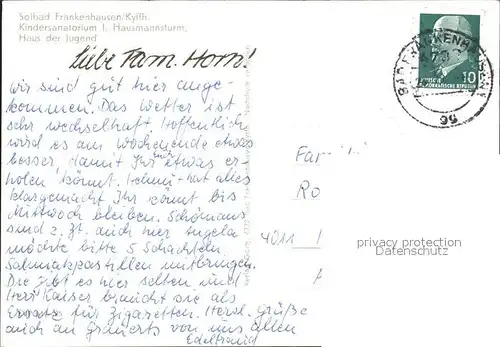 Solbad Frankenhausen/Kyffh.
Kindersanatorium I. Hausmannsturm,
Haus der Jugend
Liebe Fam. Horn!
wir sind gut hier ange-
kommen. Das Wetter ist
sehr wechselhaft. Hoffentlich
wird es am Wochenende etwas
besser, damit Ihr euch etwas er-
holen könnt. hat alles
klargemacht. Ihr könnt bis
Mittwoch bleiben. Schömanns
sind z. Zt. auch hier.
möchte bitte 5 Schachteln
Salmiakpastillen mitbringen.
Die gibt es hier selten und
Herr Kaiser braucht sie als
Ersatz für Zigaretten. Herzl. Grüße
auch an von uns allen
Edeltraud
BAD FRANKENHAUSEN
DEUTSCHE
DEMOKRATISCHE REPUBLIK
10
Far
Ro
4011
privacy protection
Datenschutz